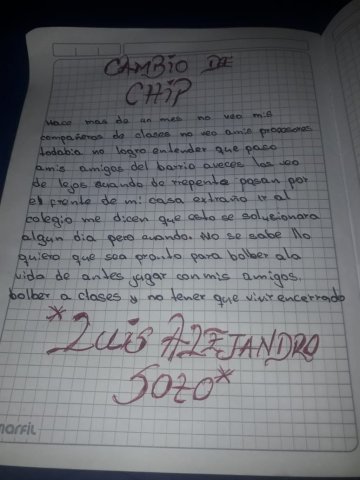 CAMBIO DE
CHIP
Hace mas de un mes no veo mis
compañeros de clases no veo amis profosores
todabia no logro entender que paso
amis amigos del barrio aveces los veo
de lejos cuando de rrepente pasan por
el frente de mi casa extraño ir al
colegio me dicen que esto se solusionara
algun dia pero cuando. No se sabe llo
quiero que sea pronto para bolber ala
vida de antes jugar con mis amigos.
bolber a clases y no tener que vivir encerrado
*Luis ALEJANDRO
SOZO*
marfil